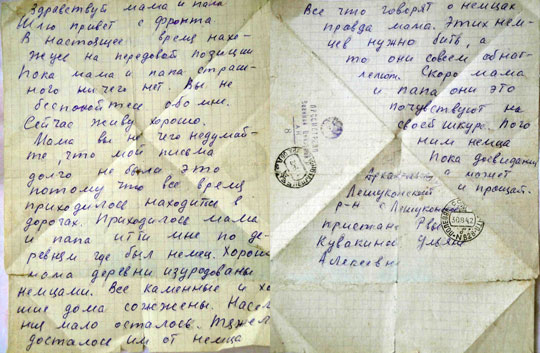 Здравствуй мама и папа
Шлю привет с фронта
В настоящее время нахо-
жусе на передовой позиции
Пока мама и папа страш-
ного ничего нет Вы не
беспокойтесе обо мне.
Сейчас живу хорошо.
Мама вы не чего недумай-
те, что мой письма
долго не были Это
потому что все время
приходилосе находится в
дорогах. Приходилосе мама
и папа итти мне по де-
ревням где был немец. Хорош
мама деревни изуродованы
немцами. Все каменные и хо
шие дома сожжены. Насел
ния мало осталось. Тяжел
досталосе им от немца
Все что говорят о немцах
правда мама. Этих нем-
цев нужно бить, а
то они совсем обнаг-
лели. Скоро мама
и папа они это
почувствуют на
своей шкуре. Пого
ним немца
Пока досвидания
а может
и прощай.
Лешуконский
р-н с Лешуконское
пристань
Кувакина
Алексеевна
30.8.42